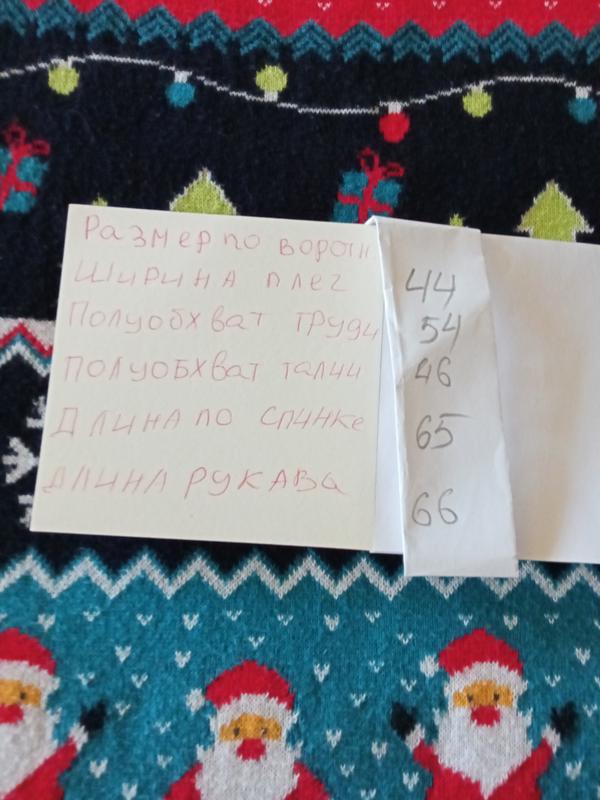 Размер по воротн
Ширина плеч 44
Полуобхват груди 54
Полуобхват талии 46
Длина по спинке 65
Длина рукава 66